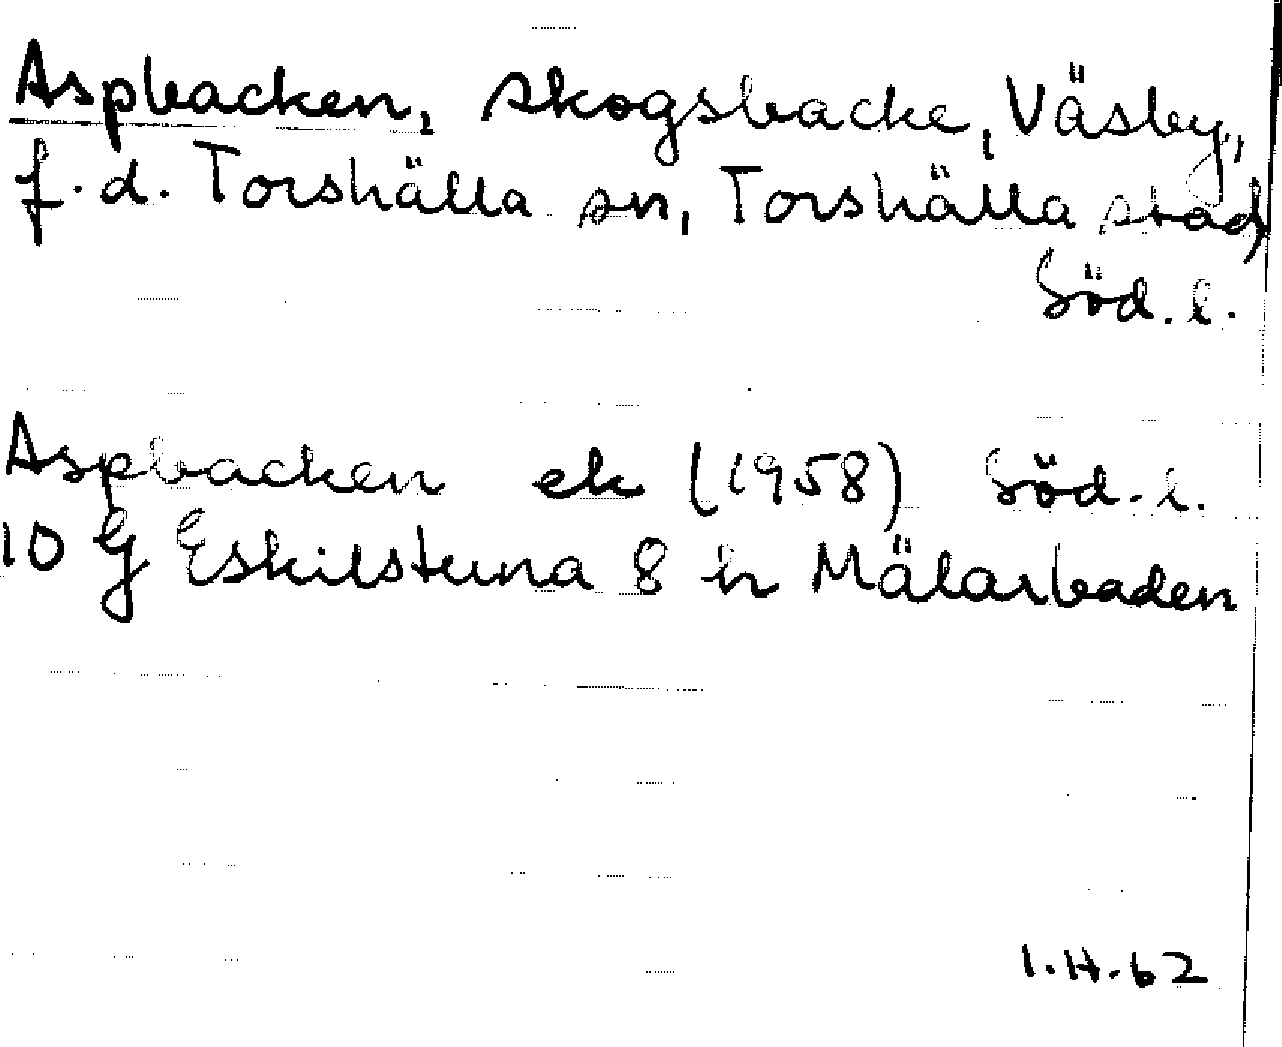 Aspbacken, skogsbacke, Väsby,
f.d. Torshälla sn, Torshälla stad,
Söd. l.
Aspbacken ek (1958) Söd. l.
10 G Eskilstuna 8 h Mälarbaden
I.H.62